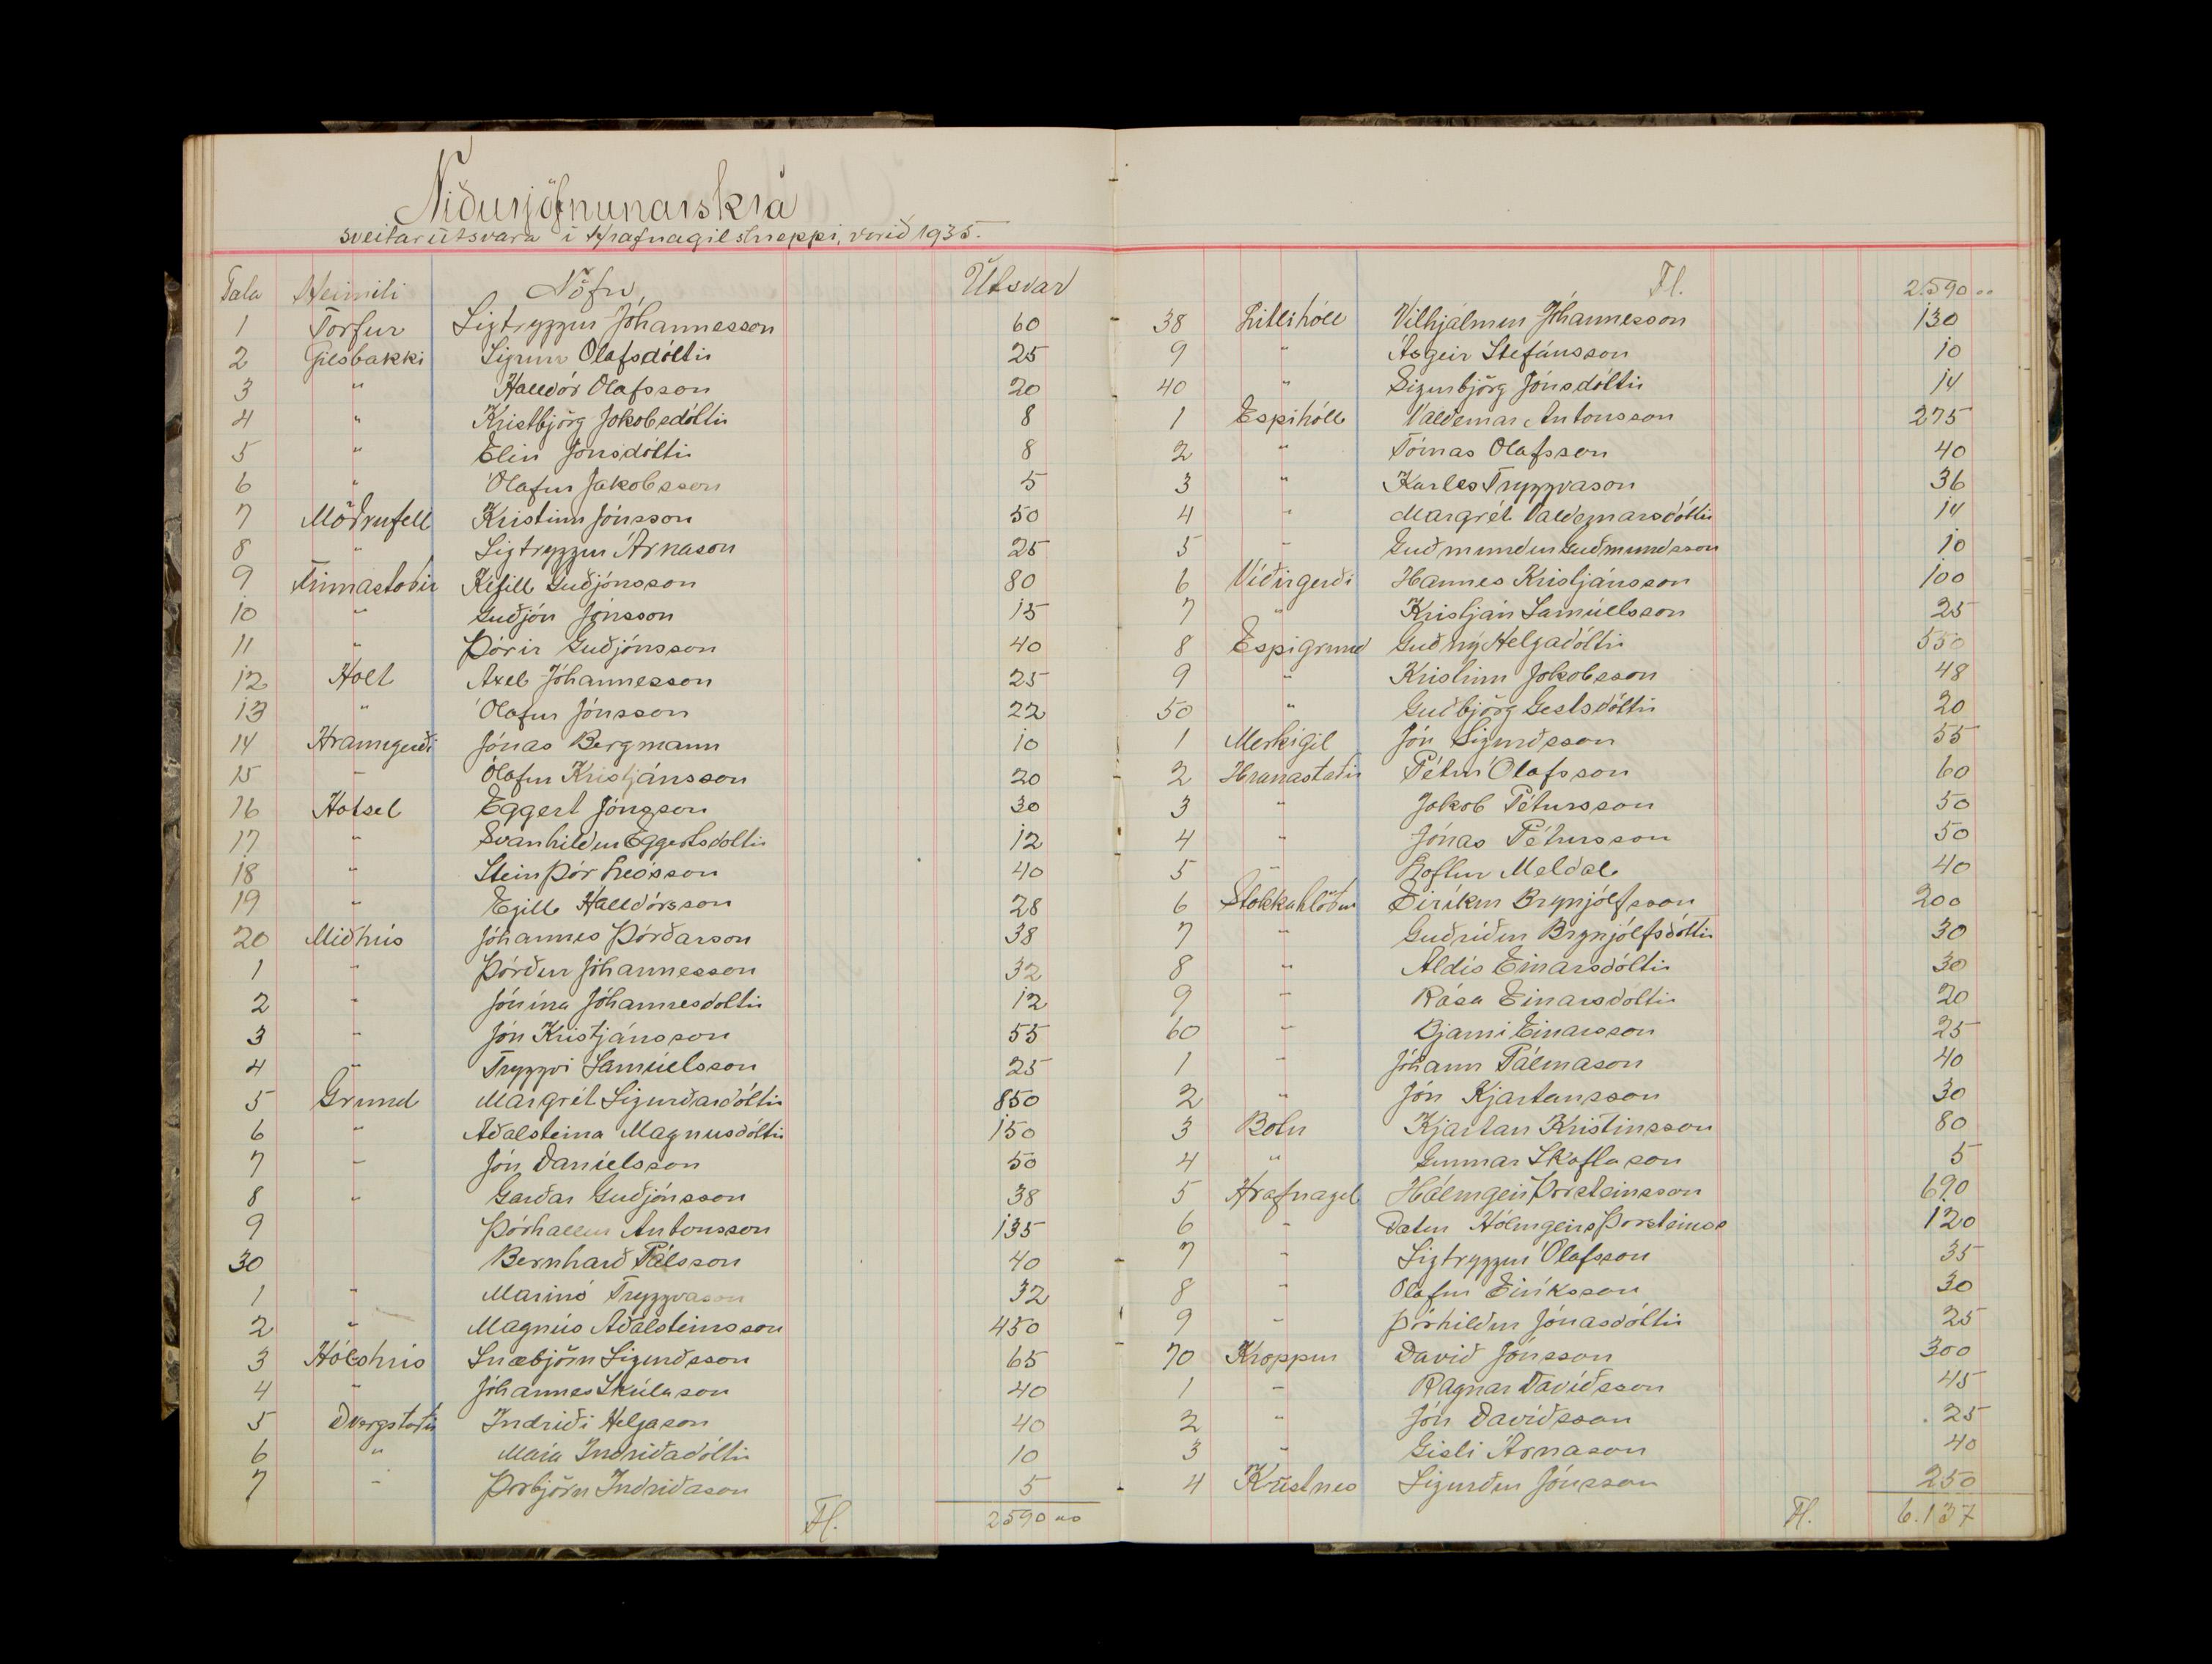 Niðurjöfnunarskrá
sveitarútsvara í Hrafnagilshreppi, vorið 1935.
Tala Heimili Nöfn Útsvar
1 Torfur Sigtryggur Jóhannesson 60
2 Gilsbakki Sigrún Ólafsdóttir 25
3 " Halldór Ólafsson 20
4 " Kristbjörg Jakobsdóttir 8
5 " Elin Jónsdóttir 8
6 " Ólafur Jakobsson 5
7 Möðrufell Kristinn Jónsson 50
8 " Sigtryggur Árnason 25
9 Finnastaðir Ketill Guðjónsson 80
10 " Guðjón Jónsson 15
11 " Þórir Guðjónsson 40
12 Holt Axel Jóhannesson 25
13 " Ólafur Jónsson 22
14 Hranngerði Jónas Bergmann 10
15 - Ólafur Kristjánsson 20
16 Holsel Eggert Jónsson 30
17 " Svanhildur Eggertsdóttir 12
18 " Steinþór Leósson 40
19 " Egill Halldórsson 28
20 Miðhús Jóhannes Þórðarson 38
1 " Þórður Jóhannesson 32
2 " Jónína Jóhannesdóttir 12
3 " Jón Kristjánsson 55
4 " Tryggvi Samúelsson 25
5 Grund Margrét Sigurðardóttir 850
6 " Aðalsteina Magnusdóttir 150
7 - Jón Daníelsson 50
8 " Garðar Guðjónsson 38
9 Þórhallur Antonsson 135
30 Bernharð Pálsson 40
1 " Marinó Tryggvason 32
2 " Magnús Aðalsteinsson 450
3 Hólshús Snæbjörn Sigurðsson 65
4 " Jóhannes Skúlason 40
5 Dvergstaðir Indriði Helgason 40
6 " María Indriðadóttir 10
7 - Þorbjörn Indriðason 5
Fl. 2590 00
Fl. 2590 00
38 Litlihóll Vilhjálmur Jóhannesson 130
9 " Ásgeir Stefánsson 10
40 " Sigurbjörg Jónsdóttir 14
1 Espihóll Valdemar Antonsson 275
2 " Tómas Ólafsson 40
3 " Karles Tryggvason 36
4 " Margrét Valdemarsdóttir 14
5 - Guðmundur Guðmundsson 10
6 Víðirgerði Hannes Kristjánsson 100
7 " Kristján Samúelsson 25
8 Espigrund Guðný Helgadóttir 550
9 " Kristinn Jakobsson 48
50 " Guðbjörg Gestsdóttir 20
1 Merkigil Jón Sigurðsson 55
2 Hranastaðir Pétur Ólafsson 60
3 " Jakob Pétursson 50
4 " Jónas Pétursson 50
5 - Meldal 40
6 Stokkahlöður Eiríkur Brynjólfsson 200
7 " Guðríður Brynjólfsdóttir 30
8 " Aldís Einarsdóttir 30
9 - Rósa Einarsdóttir 20
60 - Bjarni Einarsson 25
1 - Jóhann Pálmason 40
2 " Jón Kjartansson 30
3 Botn Kjartan Kristinsson 80
4 " Gunnar Skaftason 5
5 Hrafnagil Hólmgeir Þorsteinsson 690
6 - Dætur Hólmgeirs Þorsteinss 120
7 - Sigtryggur Ólafsson 35
8 - Ólafur Eiríksson 30
9 - Þórhildur Jónasdóttir 25
70 Kroppur Davíð Jónsson 300
1 - Ragnar Davíðsson 45
2 " Jón Davíðsson 25
3 " Gísli Árnason 40
4 Kristnes Sigurður Jónsson 250
Fl. 6.137